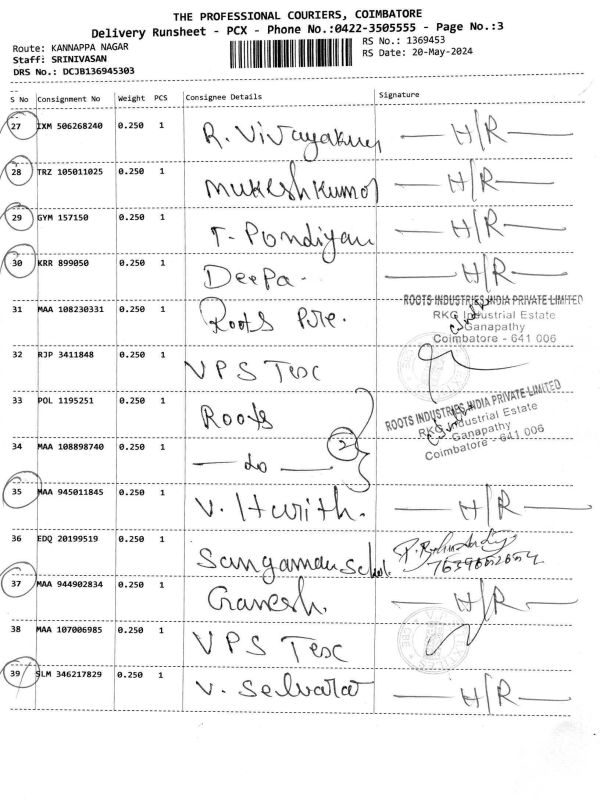 THE PROFESSIONAL COURIERS, COIMBATORE
Delivery Runsheet - PCX - Phone No.:0422-3505555 - Page No.:3
Route: KANNAPPA NAGAR RS No.: 1369453
Staff: SRINIVASAN RS Date: 20-May-2024
DRS No.: DCJB136945303
S No Consignment No Weight PCS Consignee Details Signature
27 IXM 506268240 0.250 1 R. Vivayakum H/R
28 TRZ 105011025 0.250 1 Mukeshkumar H/R
29 GYM 157150 0.250 1 T. Pondiyan H/R
30 KRR 899050 0.250 1 Deepa - H/R
31 MAA 108230331 0.250 1 Roots Pvte. ROOTS INDUSTRIES INDIA PRIVATE LIMITED
RKG Industrial Estate
Ganapathy
Coimbatore - 641 006
32 RJP 3411848 0.250 1 VPS Texc
33 POL 1195251 0.250 1 Roots ROOTS INDUSTRIES INDIA PRIVATE LIMITED
RKG Industrial Estate
Ganapathy
Coimbatore - 641 006
34 MAA 108898740 0.250 1 do 2
35 MAA 945011845 0.250 1 V. Harith. H/R
36 EDQ 20199519 0.250 1 School.
37 MAA 944902834 0.250 1 Ganesh. H/R
38 MAA 107006985 0.250 1 VPS Texc
39 SLM 346217829 0.250 1 V. Selvarat H/R